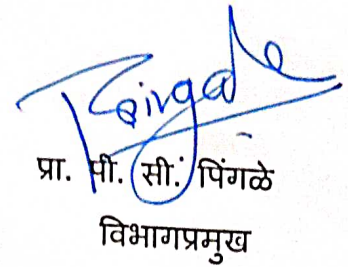 Pingale
प्रा. पी. सी. पिंगळे
विभागप्रमुख